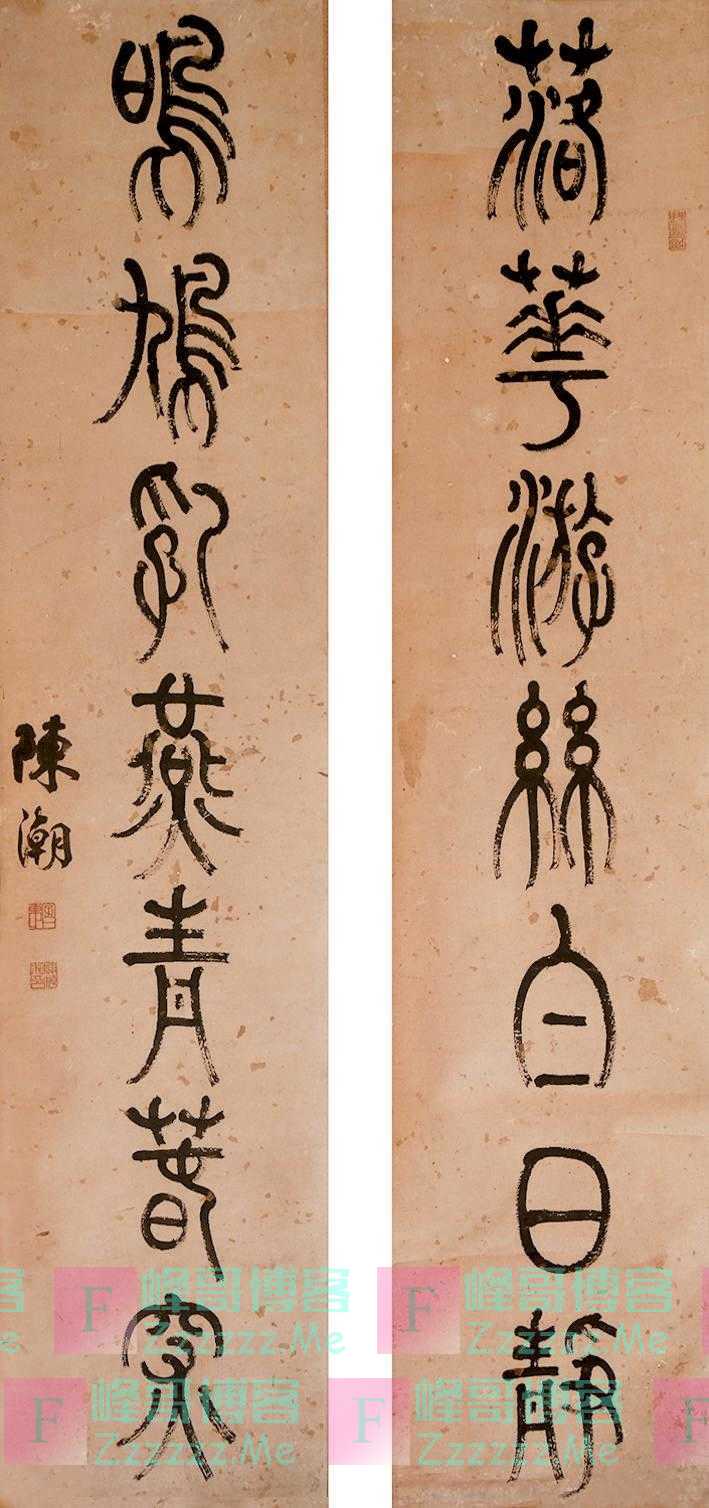 落華游絲白日靜
鳴鳩乳燕青春深
陳潮
F 峰哥博客
Zzzzzz.Me
F 峰哥博客
Zzzzzz.Me
F 峰哥博客
Zzzzzz.Me
F 峰哥博客
Zzzzzz.Me